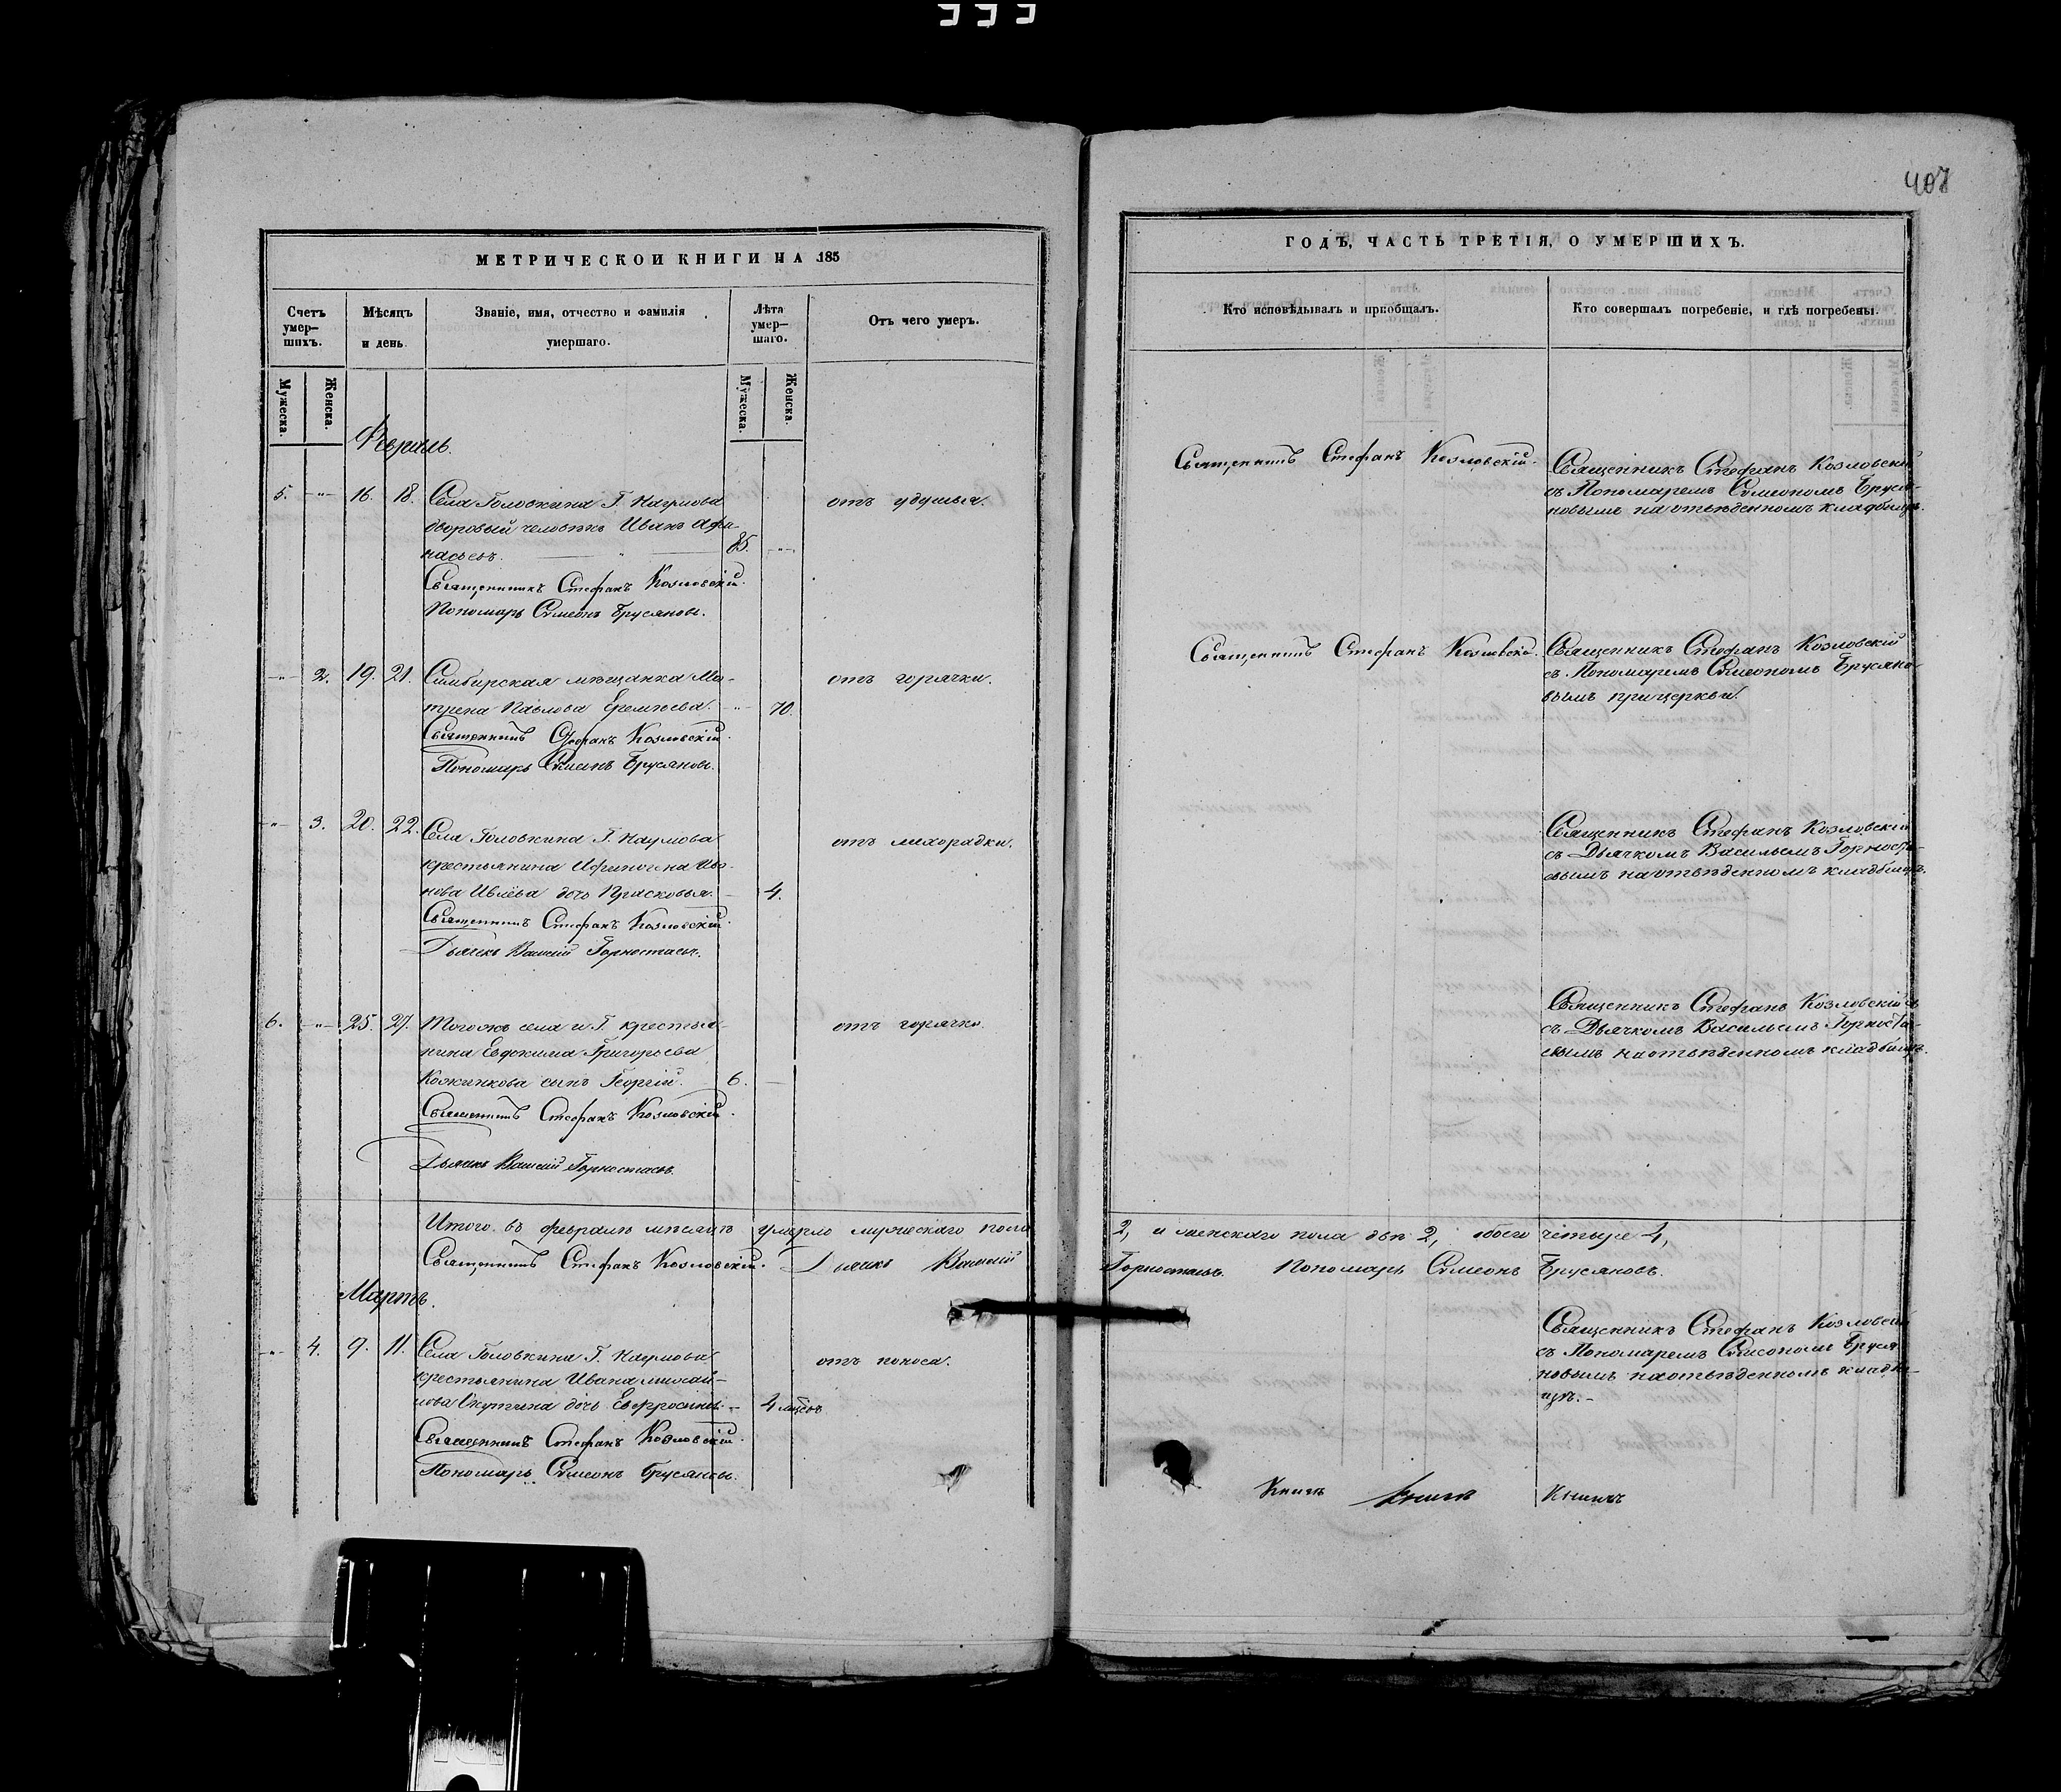 407
МЕТРИЧЕСКОИ КНИГИ НА 185
Счетъ умер-
шихъ.
Мѣсяцъ
и день.
Званіе, имя, отчество и фамилія
умершаго.
Лѣта
умер-
шаго.
Отъ чего умеръ.
Мужеска.
Женска.
Мужеска.
Женска.
Февраль.
5. -"- 16. 18. Села Головкина Г. Наумова отъ удушья.
дворовый человѣкъ Иванъ Афа-
насьевъ. " 85. -"-
Священникъ Стефанъ Козловскій.
Пономарь Симеонъ Брусяновъ.
-"- 2. 19. 21. Симбирская мѣщанка Ма- отъ горячки.
трена Павлова Еремѣева. -"- 70.
Священникъ Стефанъ Козловскій.
Пономарь Симеонъ Брусяновъ.
-"- 3. 20. 22. Села Головкина Г. Наумова отъ лихорадки.
крестьянина Ива-
нова дочь Прасковья. - 4.
Священникъ Стефанъ Козловскій.
Дьячекъ Василій Горностаевъ.
6. -"- 25. 27. Тогожъ села и Г. крестья- отъ горячки.
нина Евдокима Григорьева
Кожинкова сынъ Георгій. 6. -
Священникъ Стефанъ Козловскій.
Дьячекъ Василій Горностаевъ.
Итого въ февралѣ мѣсяцѣ умерло мужескаго пола
Священникъ Стефанъ Козловскій. Дьячекъ Василій
Мартъ.
-"- 4. 9. 11. Села Головкина Г. Наумова отъ поноса.
крестьянина Ивана Михай-
лова дочь -
4 мѣсов
Священникъ Стефанъ Козловскій.
Пономарь Симеонъ Брусяновъ.
ГОДЪ, ЧАСТЬ ТРЕТІЯ, О УМЕРШИХЪ.
Кто исповѣдывалъ и пріобщалъ.
Кто совершалъ погребеніе, и гдѣ погребены.
Священникъ Стефанъ Козловскій.
Священникъ Стефанъ Козловскій
съ Пономаремъ Симеономъ Бруся-
новымъ на отведенномъ кладбищѣ.
Священникъ Стефанъ Козловскій.
Священникъ Стефанъ Козловскій
съ Пономаремъ Симеономъ Брусяно-
вымъ при церкви.
Священникъ Стефанъ Козловскій
съ Дьячкомъ Васильемъ Горноста-
евымъ на отведенномъ кладбищѣ.
Священникъ Стефанъ Козловскій
съ Дьячкомъ Васильемъ Горноста-
евымъ на отведенномъ кладбищѣ.
2, и женскаго пола двѣ 2, обоего четыре 4,
Горностаевъ. Пономарь Симеонъ Брусяновъ.
Священникъ Стефанъ Козловскій
съ Пономаремъ Симеономъ Бруся
новымъ на отведенномъ кладби-
щѣ. -